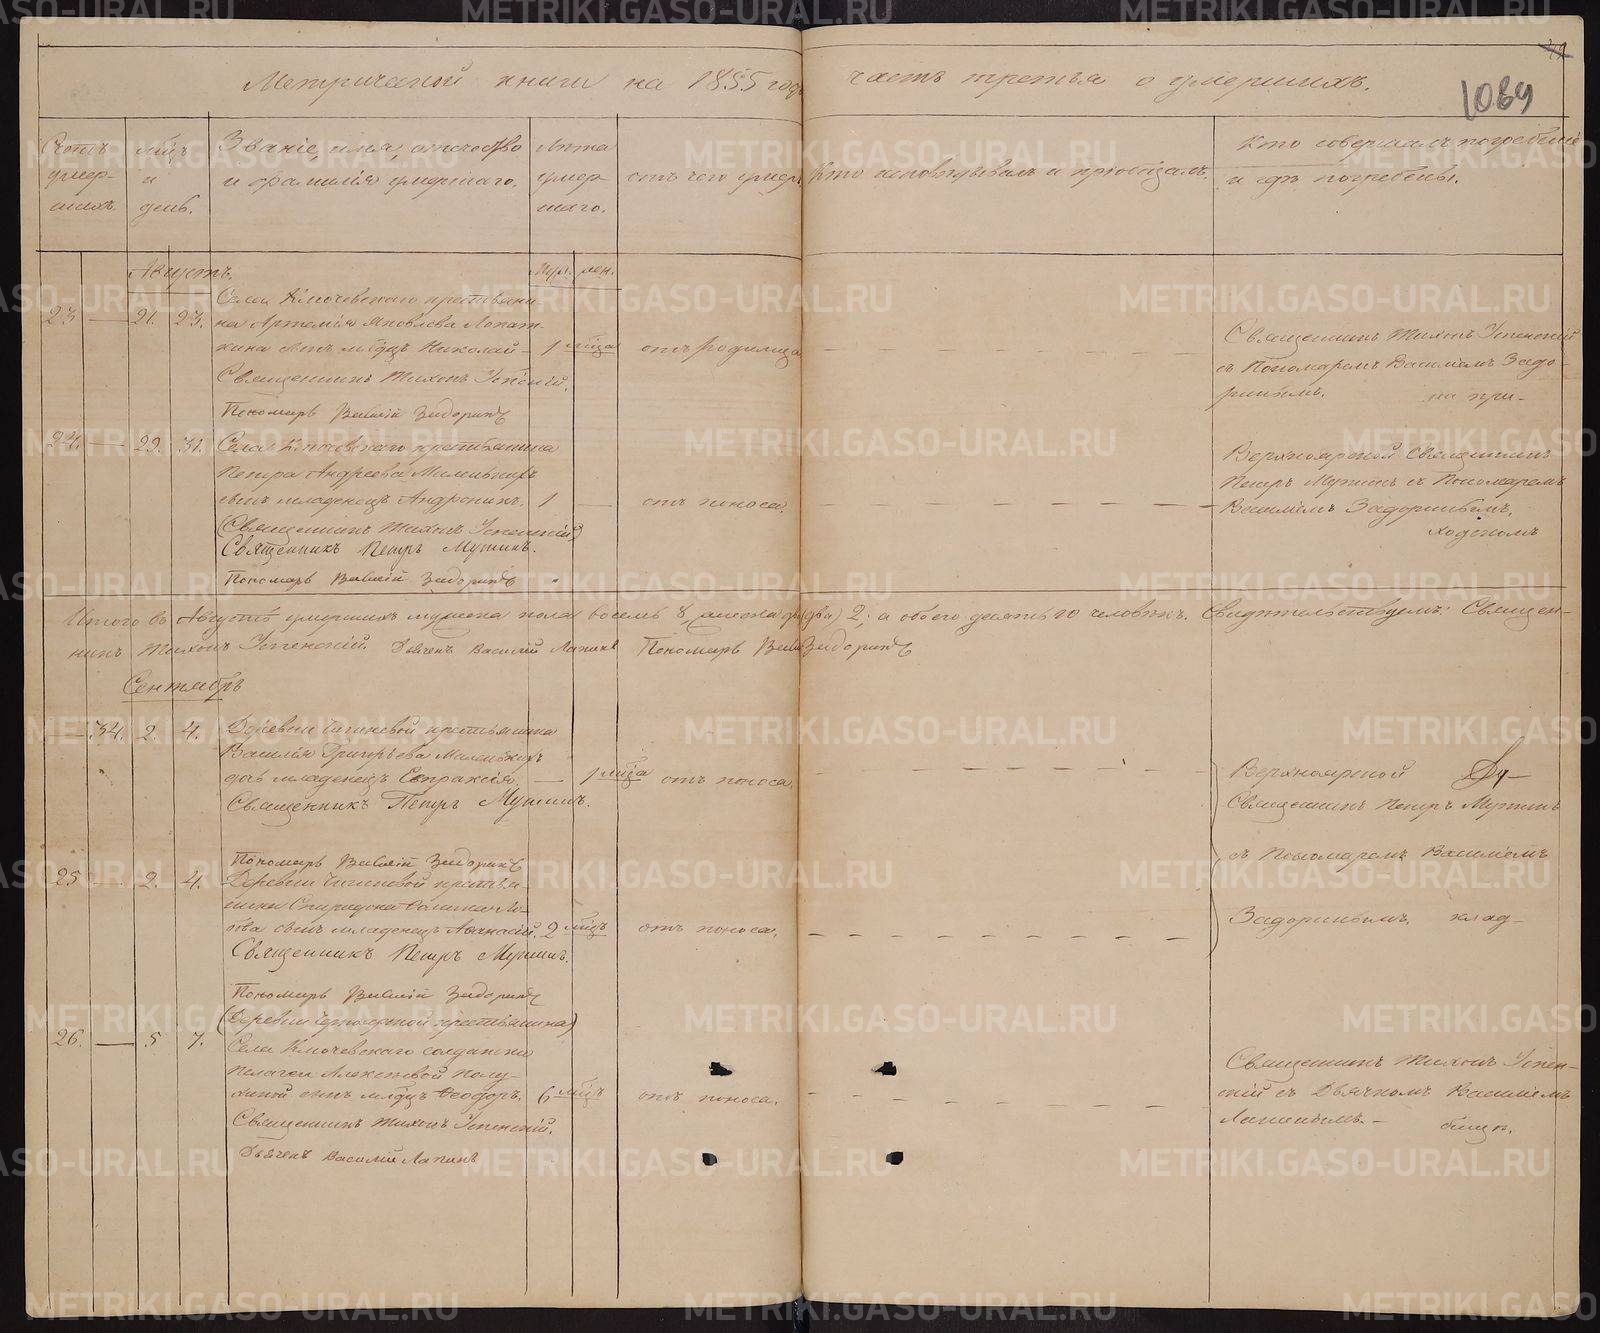 Метрической книги на 1855 годъ часть третья о умершихъ.
1069
Счотъ умер- шихъ.
мѣсяцъ и день.
Званіе, имя, отчество
и фамилія умершаго.
Лѣта умер- шаго.
отъ чего умеръ
Кто исповѣдывалъ и пріобщалъ.
Кто совершалъ погребеніе
и гдѣ погребены.
Августъ.
Муж. жен.
23 — 21. 23.
Села Ключевскаго крестьяни-
на Артемія Яковлева Лопат-
кина сынъ млдцъ Николай — 1 мѣсяца отъ родимца
Священникъ Тихонъ Успенскій.
Пономарь Василій Задоринъ
Священникъ Тихонъ Успенскій
съ Пономаремъ Василіемъ Задо-
ринымъ. на при-
24. — 29. 31.
Села Ключевскаго крестьянина
Петра Андреева Маленькихъ
сынъ младенецъ Андроникъ. 1 — отъ поноса.
(Священникъ Тихонъ Успенскій)
Священникъ Петръ Мутинъ.
Пономарь Василій Задоринъ
Верхноярской Священникъ
Петръ Мутинъ съ Пономаремъ
Василіемъ Задоринымъ.
ходскомъ
Итого въ Августѣ умершихъ мужеска пола восемь 8, женска два (два) 2; а обоего десять 10 человѣкъ. Свидѣтельствуемъ: Священ-
никъ Тихонъ Успенскій. Дьячекъ Василій Лапинъ Пономарь Василій Задоринъ
Сентябрь
— 34. 2. 4.
Деревни крестьянина
Василія Григорьева Маленькихъ
дочь младенецъ Евпраксія. — 1 мѣсяца отъ поноса.
Священникъ Петръ Мутинъ.
Пономарь Василій Задоринъ
Верхноярской
Священникъ Петръ Мутинъ
съ Пономаремъ Василіемъ
Задоринымъ. клад-
25 — 2. 4.
Деревни крестья-
нина Спиридона
сынъ младенецъ Аѳанасій. 2 мѣсяцъ отъ поноса.
Священникъ Петръ Мутинъ.
Пономарь Василій Задоринъ
(Деревни крестьянина)
26. — 5 7.
Села Ключевскаго солдатки
Пелагеи Алексѣевой
сынъ млдцъ Ѳеодоръ. 6 мѣсяцъ отъ поноса.
Священникъ Тихонъ Успенскій.
Дьячекъ Василій Лапинъ
Священникъ Тихонъ Успен-
скій съ Дьячкомъ Василіемъ
Лапинымъ. — бищѣ.
METRIKI.GASO-URAL.RU